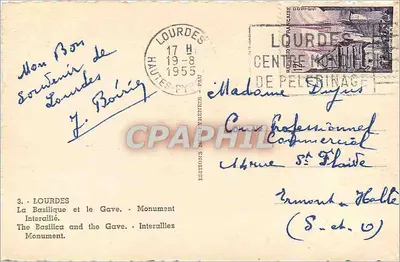 Mon Bon
Souvenir de
Lourdes
LOURDES
17 H
19-8
1955
LOURDES
CENTRE MONDIAL
DE PELERINAGE
Madame
Cours Professionnel
Commercial
Avenue St
Ermont-Halte
(S-et-O)
CPAPHIL
3. - LOURDES
La Basilique et le Gave. - Monument
Interallié.
The Basilica and the Gave. - Interallies
Monument.